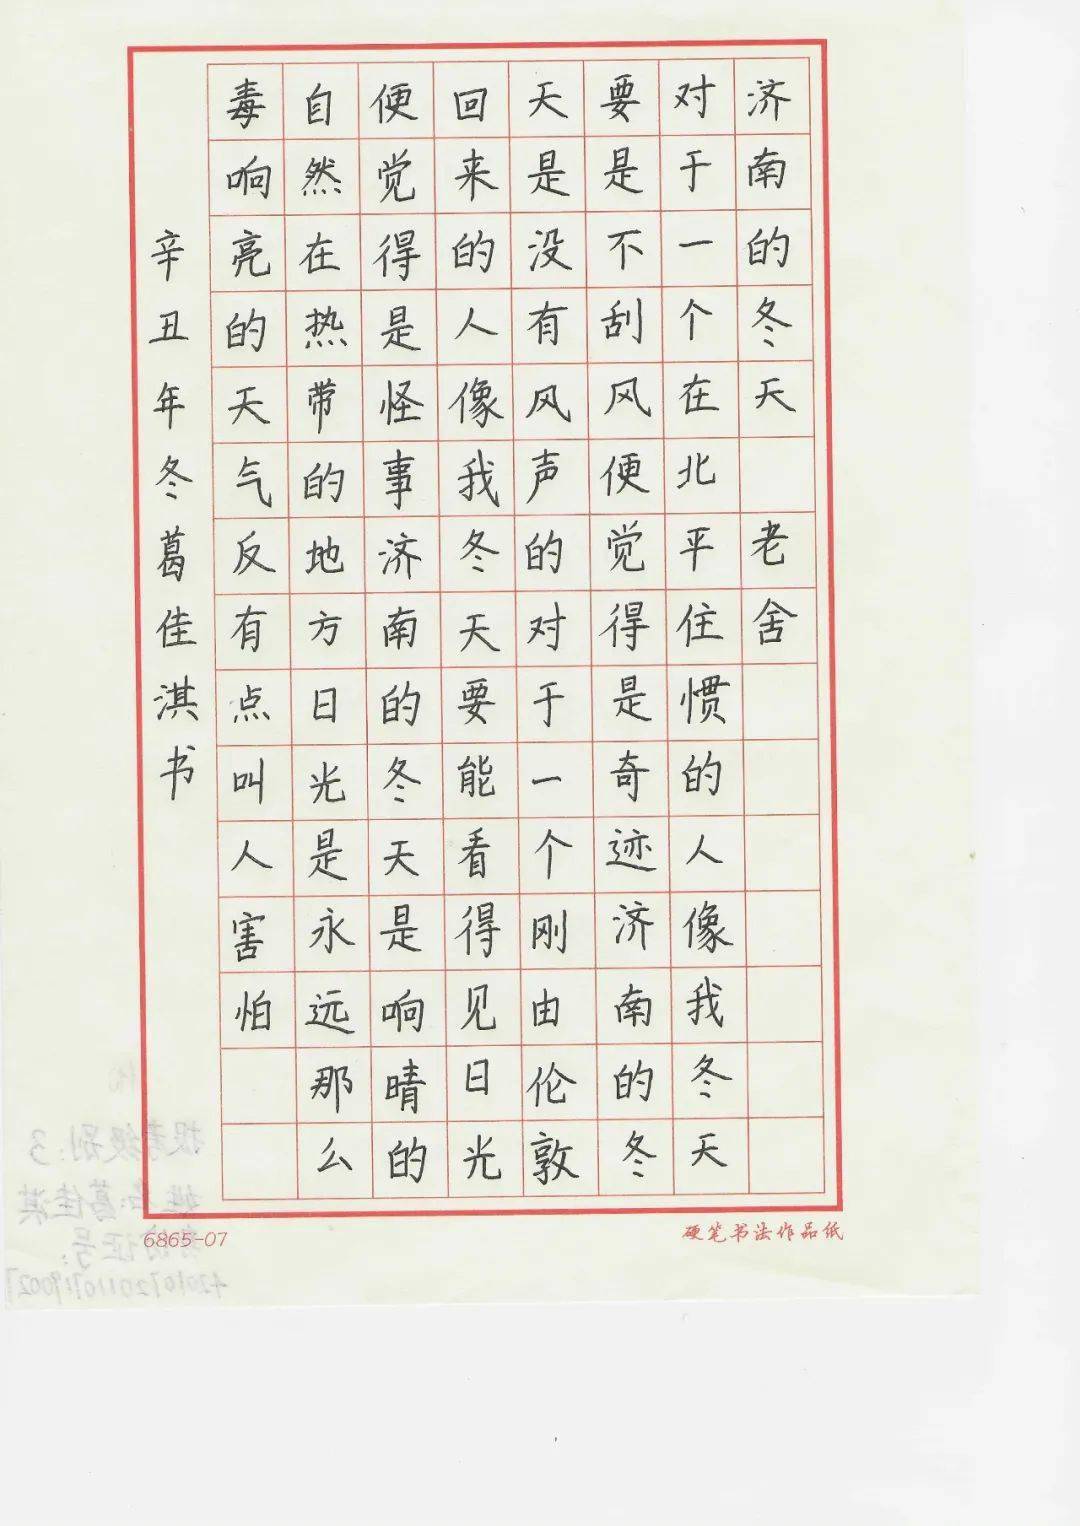 济南的冬天 老舍
对于一个在北平住惯的人像我冬天
要是不刮风便觉得是奇迹济南的冬
天是没有风声的对于一个刚由伦敦
回来的人像我冬天要能看得见日光
便觉得是怪事济南的冬天是响晴的
自然在热带的地方日光是永远那么
毒响亮的天气反有点叫人害怕
辛丑年冬葛佳淇书
6865-07
硬笔书法作品纸
报考级别:3
姓名:葛佳淇